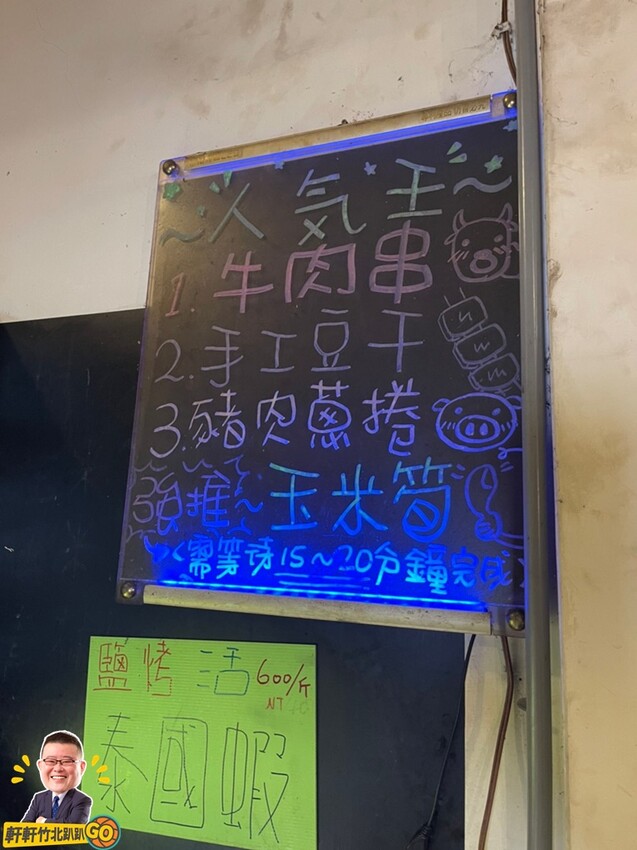 ~人気王~
1. 牛肉串
2. 手工豆干
3. 豬肉蔥捲
強推 玉米筍
(需等待15~20分鐘完成)
鹽烤活 600/斤
NT
泰國蝦
軒軒竹北趴趴GO